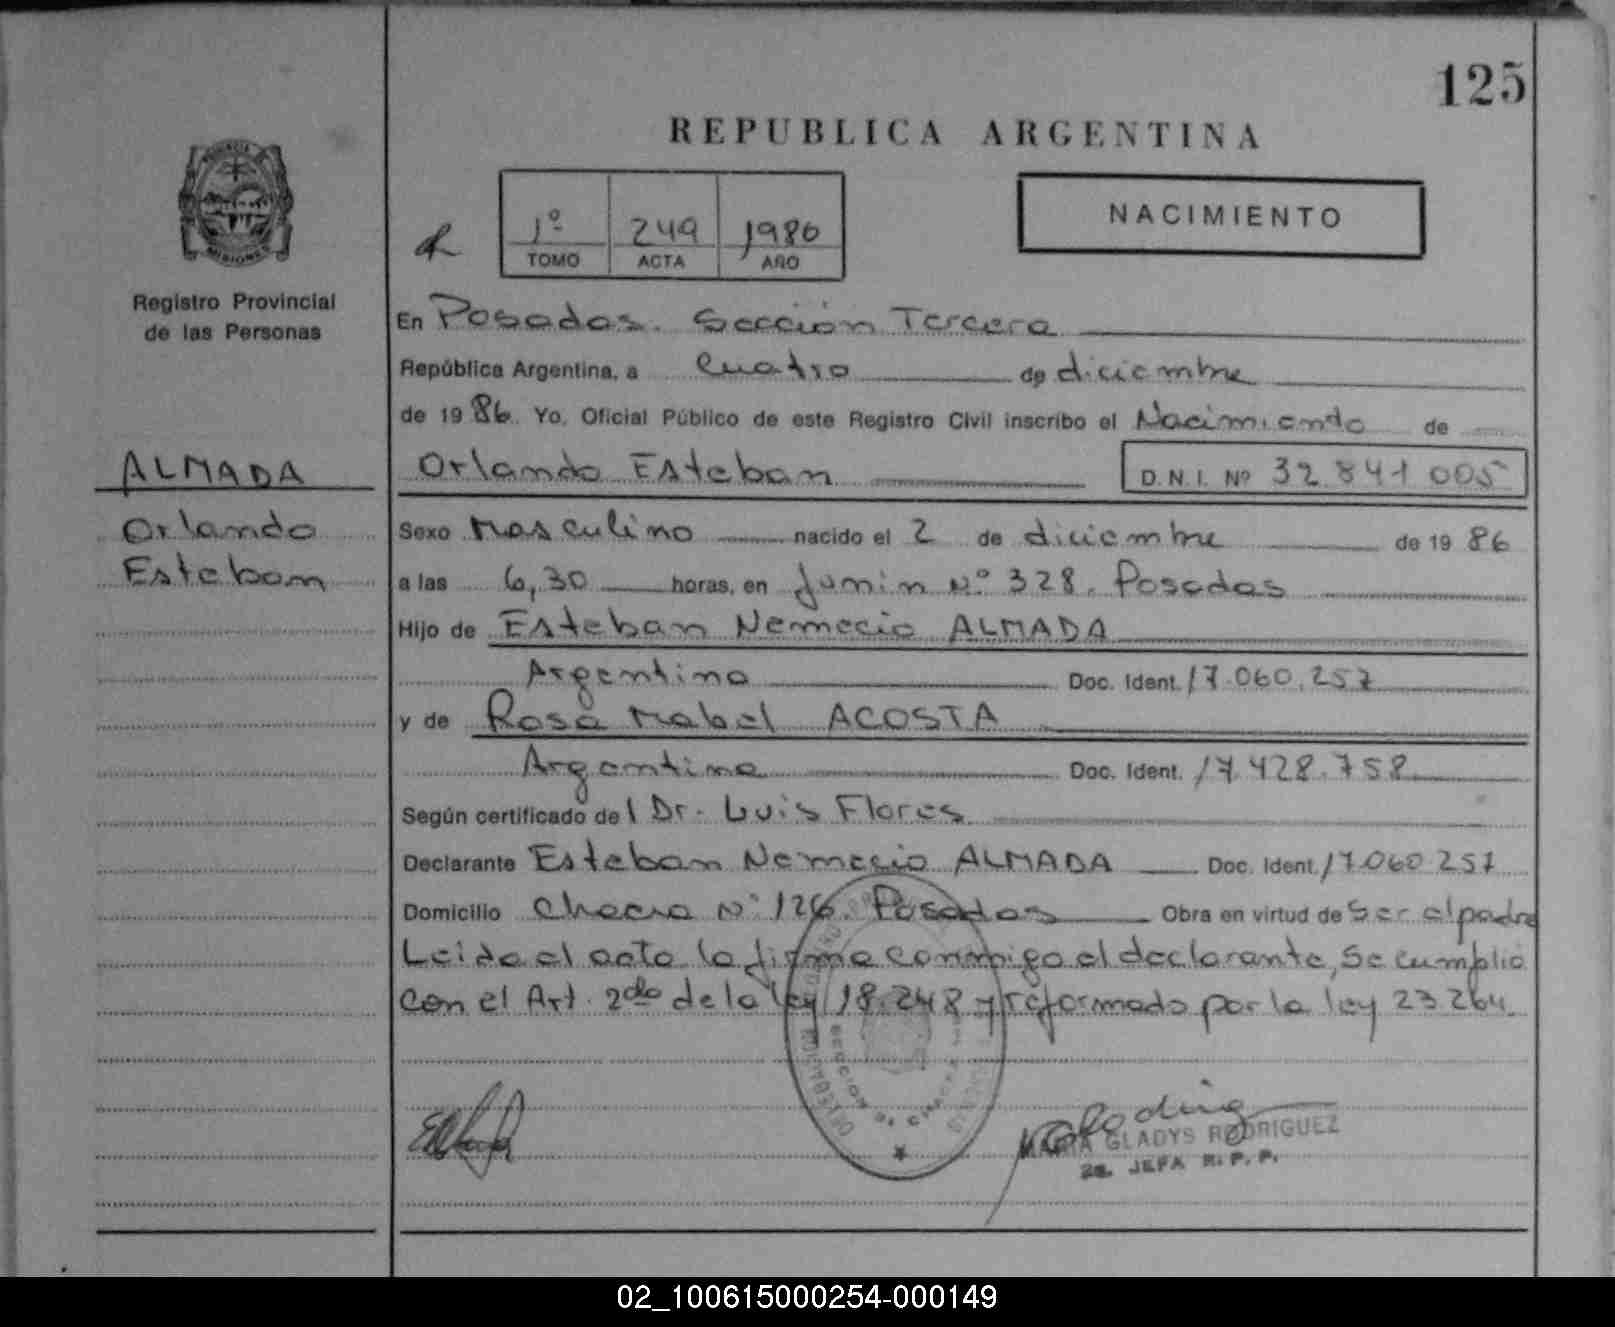 125
REPUBLICA ARGENTINA
PROVINCIA DE
MISIONES
Registro Provincial
de las Personas
1º 249 1986
TOMO ACTA AÑO
NACIMIENTO
En Posadas. Sección Tercera
República Argentina, a cuatro de diciembre
de 1986. Yo, Oficial Público de este Registro Civil inscribo el Nacimiento de
ALMADA
Orlando Esteban D.N.I. Nº 32.841.005
Orlando
Esteban
Sexo Masculino nacido el 2 de diciembre de 1986
a las 6,30 horas, en Junin Nº 328. Posadas
Hijo de Esteban Nemecio ALMADA
Argentino Doc. Ident. 17.060.257
y de Rosa Mabel ACOSTA
Argentina Doc. Ident. 17.428.758
Según certificado del Dr. Luis Flores
Declarante Esteban Nemecio ALMADA Doc. Ident. 17.060.257
Domicilio Chacra Nº 126. Posadas Obra en virtud de Ser el padre
Leida el acta la firma conmigo el declarante, Se cumplio
con el Art. 2do de la ley 18.248 y reformado por la ley 23.264.
SECCION
MARIA GLADYS RODRIGUEZ
2a. JEFA R. P. P.
02_100615000254-000149